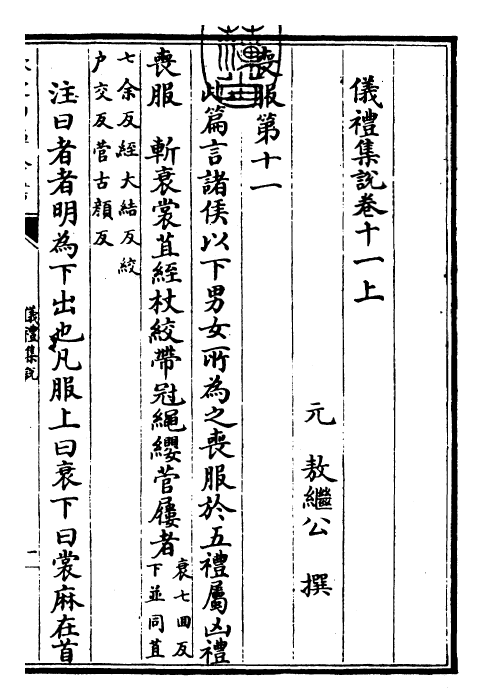 儀禮集說卷十一上
元 敖繼公 撰
喪服第十一
此篇言諸侯以下男女所為之喪服於五禮屬凶禮
喪服 斬衰裳苴絰杖絞帶冠繩纓菅屨者
衰七回反
下並同苴
七余反絰大結反絞
户交反菅古顔反
注曰者者明為下出也凡服上曰衰下曰裳麻在首
儀禮集說